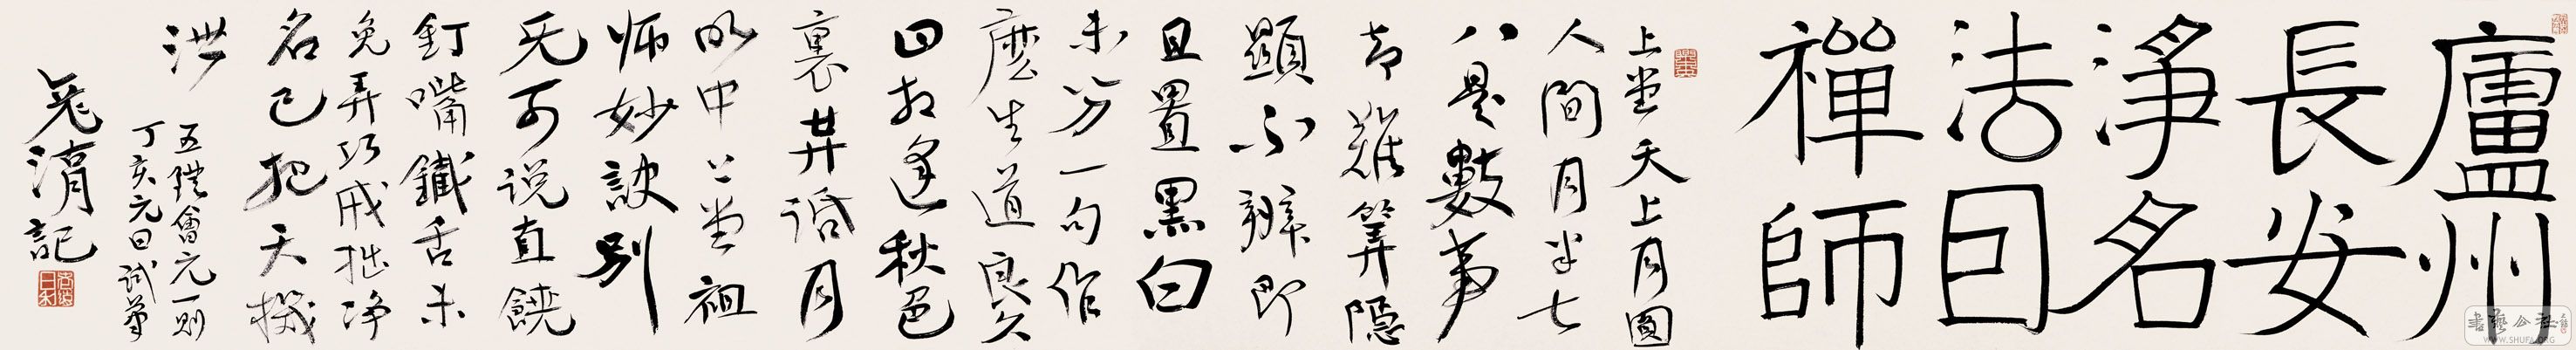 廬州
長安
淨名
法因
禪師
上堂天上月圓
人間月半七
八是數事
却難筭隱
顯不辨即
且置黑白
未分一句作
麼生道良久
曰相逢秋色
裏共話月
明中上堂祖
師妙訣別
无可说直饒
釘嘴鐵舌未
免弄巧成拙淨
名已把天機
泄
五燈會元一則
丁亥元日試筆
涓記
書藝公社
WWW.SHUFA.ORG